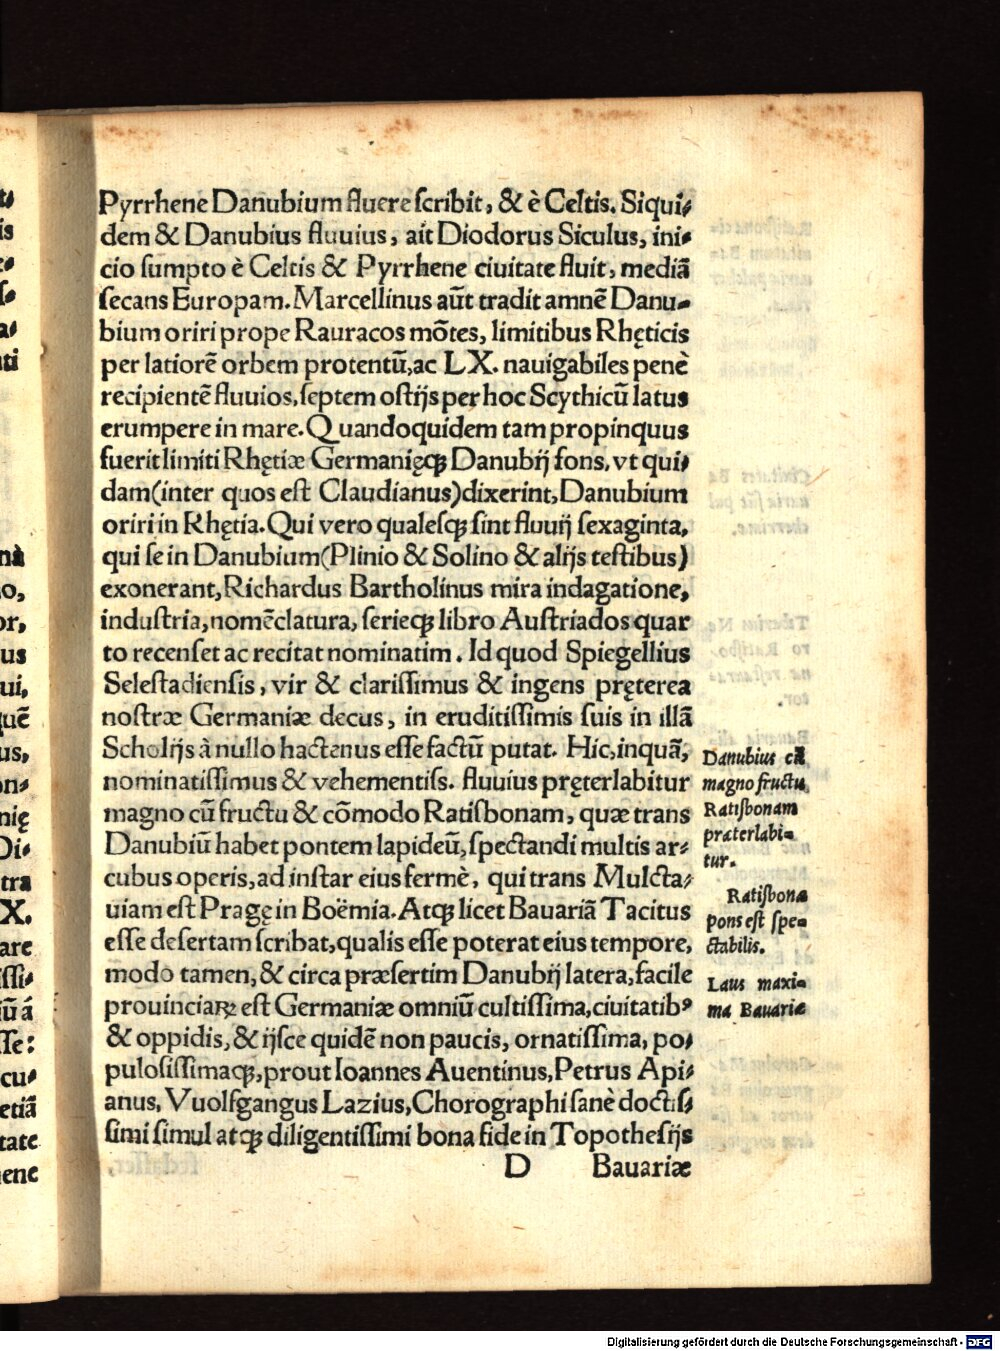 Pyrrhene Danubium fluere scribit, & è Celtis. Siqui⸗
dem & Danubius fluuius, ait Diodorus Siculus, ini⸗
cio sumpto è Celtis & Pyrrhene ciuitate fluit, mediã
secans Europam. Marcellinus aũt tradit amnẽ Danu⸗
bium oriri prope Rauracos mõtes, limitibus Rhęticis
per latiorẽ orbem protentũ, ac LX. nauigabiles penè
recipientẽ fluuios, septem ostijs per hoc Scythicũ latus
erumpere in mare. Quandoquidem tam propinquus
fuerit limiti Rhętiæ Germanięq́; Danubij fons, vt qui⸗
dam (inter quos est Claudianus) dixerint, Danubium
oriri in Rhętia. Qui vero qualesq́; sint fluuij sexaginta,
qui se in Danubium (Plinio & Solino & alijs testibus)
exonerant, Richardus Bartholinus mira indagatione,
industria, nomẽclatura, serieq́; libro Austriados quar
to recenset ac recitat nominatim. Id quod Spiegellius
Selestadiensis, vir & clarissimus & ingens pręterea
nostræ Germaniæ decus, in eruditissimis suis in illã
Scholijs à nullo hactenus esse factũ putat. Hic, inquã,
nominatissimus & vehementiss. fluuius pręterlabitur
magno cũ fructu & cõmodo Ratisbonam, quæ trans
Danubiũ habet pontem lapideũ, spectandi multis ar⸗
cubus operis, ad instar eius fermè, qui trans Mulcta⸗
uiam est Pragę in Boëmia. Atq́; licet Bauariã Tacitus
esse desertam scribat, qualis esse poterat eius tempore,
modo tamen, & circa præsertim Danubij latera, facile
prouinciaꝝ est Germaniæ omniũ cultissima, ciuitatibꝰ
& oppidis, & ijsce quidẽ non paucis, ornatissima, po⸗
pulosissimaq́;, prout Ioannes Auentinus, Petrus Api⸗
anus, Vuolfgangus Lazius, Chorographi sanè doctis⸗
simi simul atq́; diligentissimi bona fide in Topothesijs
D Bauariæ
Danubius cũ
magno fructu
Ratisbonam
præterlabi⸗
tur.
Ratisbonæ
pons est spe⸗
ctabilis.
Laus maxi⸗
ma Bauariæ
Digitalisierung gefördert durch die Deutsche Forschungsgemeinschaft - DFG